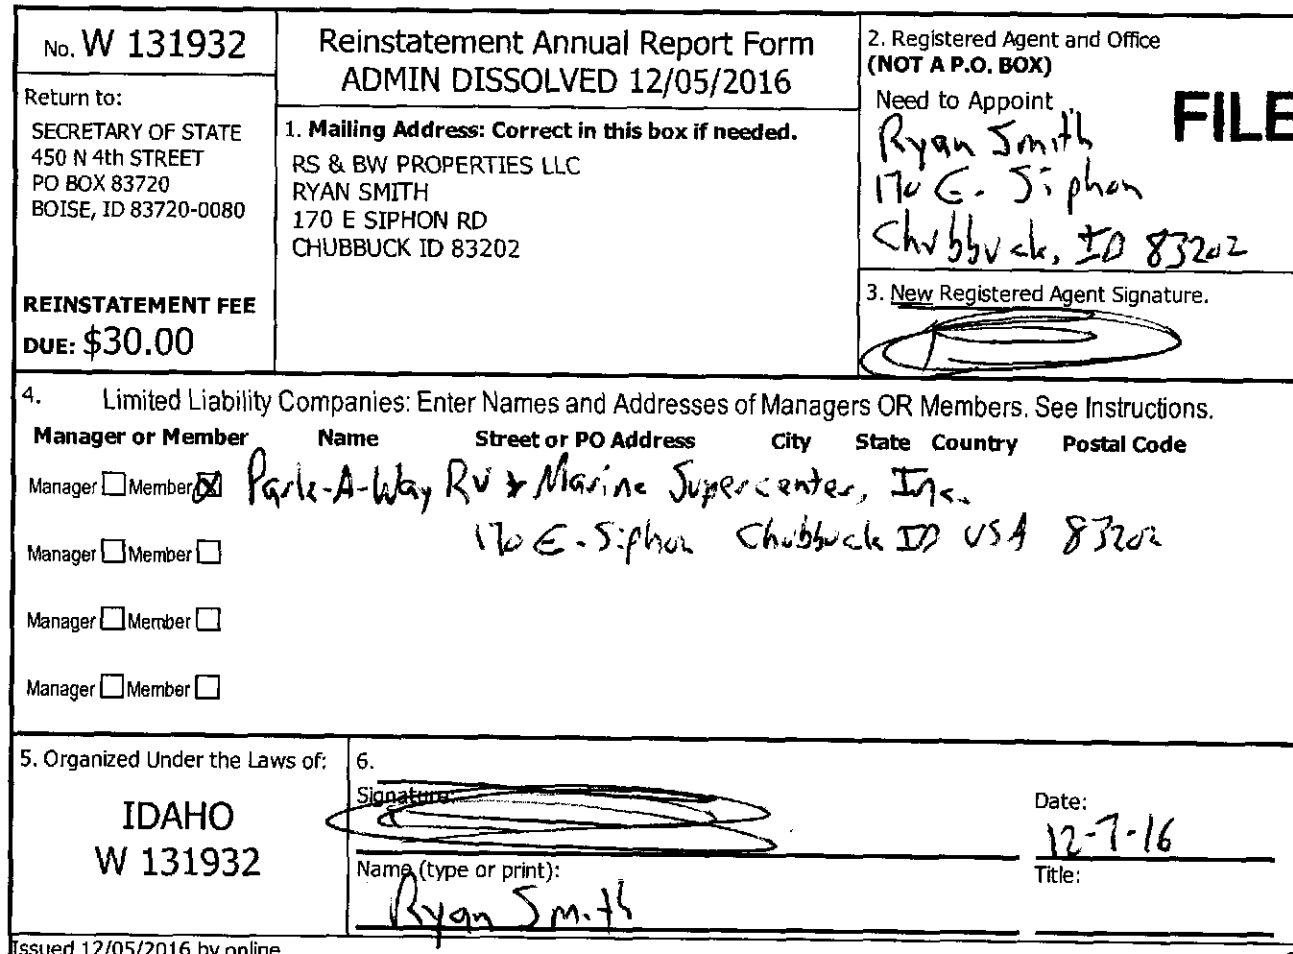 No. W 131932
Return to:
SECRETARY OF STATE
450 N 4th STREET
PO BOX 83720
BOISE, ID 83720-0080
REINSTATEMENT FEE
DUE: $30.00
Reinstatement Annual Report Form
ADMIN DISSOLVED 12/05/2016
1. Mailing Address: Correct in this box if needed.
RS & BW PROPERTIES LLC
RYAN SMITH
170 E SIPHON RD
CHUBBUCK ID 83202
2. Registered Agent and Office
(NOT A P.O. BOX)
Need to Appoint
FILE
Ryan Smith
170 E. Siphon
Chubbuck, ID 83202
3. New Registered Agent Signature.
4. Limited Liability Companies: Enter Names and Addresses of Managers OR Members. See Instructions.
Manager or Member Name Street or PO Address City State Country Postal Code
Manager Member Park-A-Way RV & Marine Supercenter, Inc.
170 E. Siphon Chubbuck ID USA 83202
Manager Member
Manager Member
Manager Member
5. Organized Under the Laws of:
IDAHO
W 131932
6.
Signature:
Date:
12-7-16
Name (type or print):
Ryan Smith
Title:
Issued 12/05/2016 by online